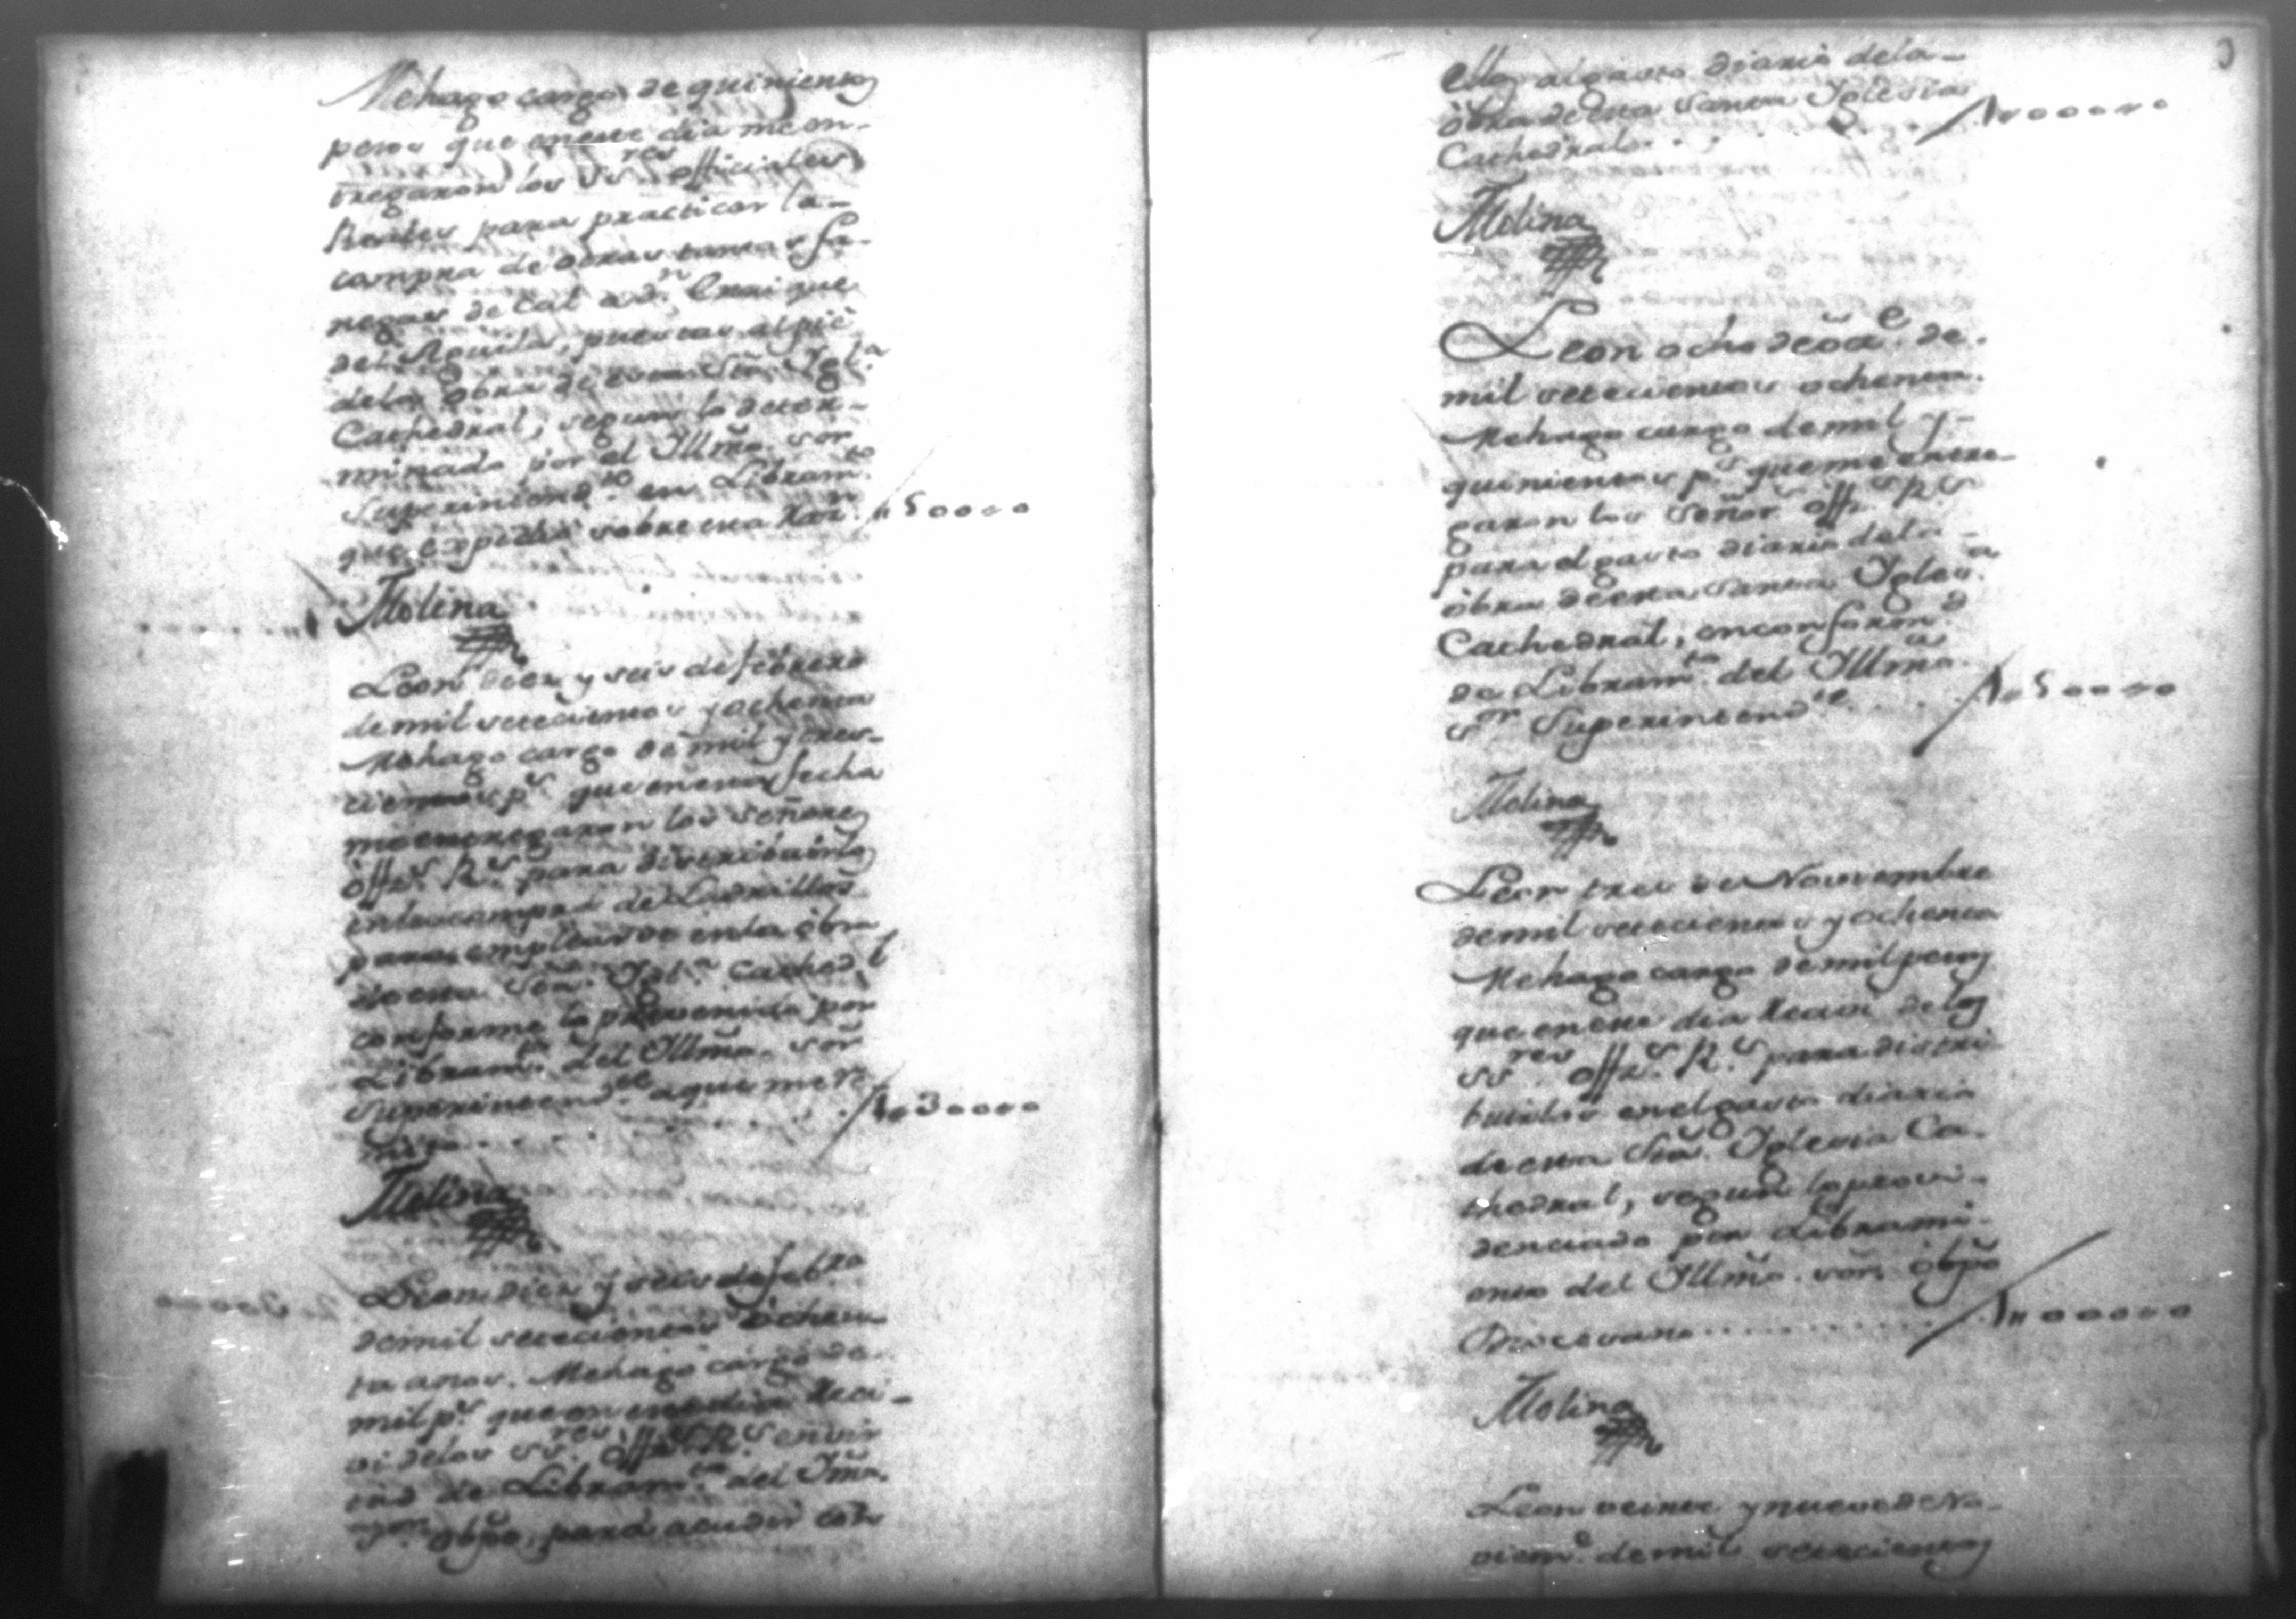 Me hago cargo de quinientos
pesos que en este dia me en-
tregaron los SS.res officiales
Reales para practicar la-
compra de otras tantas fa-
negas de Cal a d.n Enrique
del Aguila, puestas al pie
dela obra de esta Sta. Igl.a
Cathedral, segun lo deter-
minado por el Illmo. sor
Superintend.te en Libram.to
que expidio sobre esta Raz.n 500..
Molina
Leon diez y seis de febrero
de mil setecientos y ochenta
Me hago cargo de mil y tres-
cientos p.s que en esta fecha
me entregaron los señores
off.s R.s para distribuirlos
en la compra de Ladrillos
para emplearse en la obra
de esta Sta. Igl.a Cathed.l
conforme lo prevenido por
Libram.to del Illmo. sor
Superintend.te a que me re-
mito 1,,300..
Molina
Leon diez y seis de feb.ro
de mil setecientos ochen-
ta años. Me hago cargo de
mil p.s que en este dia reci-
vi delos SS.res off.s R.s en vir-
tud de Libram.to del Illmo.
S.or obpo, para acudir con
ellos al gasto diario dela-
obra de esta Santa Iglesia
Cathedral 1,,000..
Molina
Leon ocho de de
mil setecientos ochenta.
Me hago cargo de mil y-
quinientos p.s que me entre
garon los Señor.s off.s R.s
para el gasto diario dela-
obra de esta Santa Igles.a
Cathedral, en conformd.d
de Libram.to del Illmo.
S.or Superintend.te 1,,500..
Molina
Leon tres de Noviembre
de mil setecientos y ochenta
Me hago cargo de mil pesos
que en este dia Recivi delos
SS.res off.s R.s para distri
buirlos en el gasto diario
de esta Sta. Iglesia Ca-
thedral, segun lo provi-
denciado por Librami-
ento del Illmo. sor. obpo
Diocesano 1,,000..
Molina
Leon veinte y nueve de No-
viem.e de mil setecientos